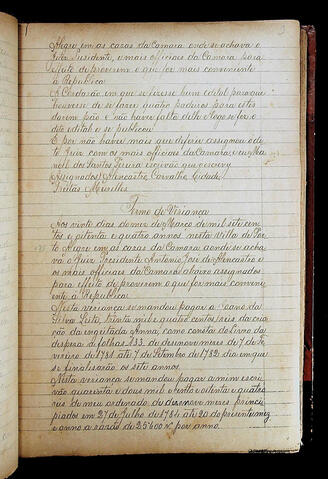 Alegre em as cazas da Camara onde se achava o
Juiz Prezidente, e mais officiaes da Camara para
effeito de proverem o que for mais conveniente
á Republica
A Cordarão em que se fizesse hum edital para que
houvesse de se fazer quatro padeiros para estes
darem pão e não haver falta delle e logo se fez o
dito edital e se publicou
E por não haver mais que deferir assignou o di
to Juiz com os mais officiaes da Camara, e eu Ma
noel dos Santos escrivão que escrevy
Assignados Alencastro, Carvalho, Cidade,
Freitas Meirelles
Termo de Vereança
Aos vinte dias do mez de Março de mil sete cen
tos e oitenta e quatro annos nesta Villa de Por
to Alegre em as cazas da Camara aonde se acha
va o Juiz Prezidente Antonio José de Alencastro e
os mais officiaes da Camara abaixo assignados
para effeito de proverem o que for mais conveni
ente á Republica
Nesta veriança se mandou pagar a da
Silva Leita, trinta mil e quatro centos reis da cria
ção da engeitada Anna, como consta do livro da
despeza a folhas 133, de desnove mezes de 7 de Fe
vereiro de 1781 até 7 de Setembro de 1782 dia em que
se finalisarão os sete annos.
Nesta veriança se mandou pagar a mim escri
vão quarenta e dous mil e oitenta e quatro
reis de meu ordenado, de desenove mezes princi
piados em 27 de Julho de 1784 até 20 do prezente mez
e anno a razão de 25$600 rs por anno.